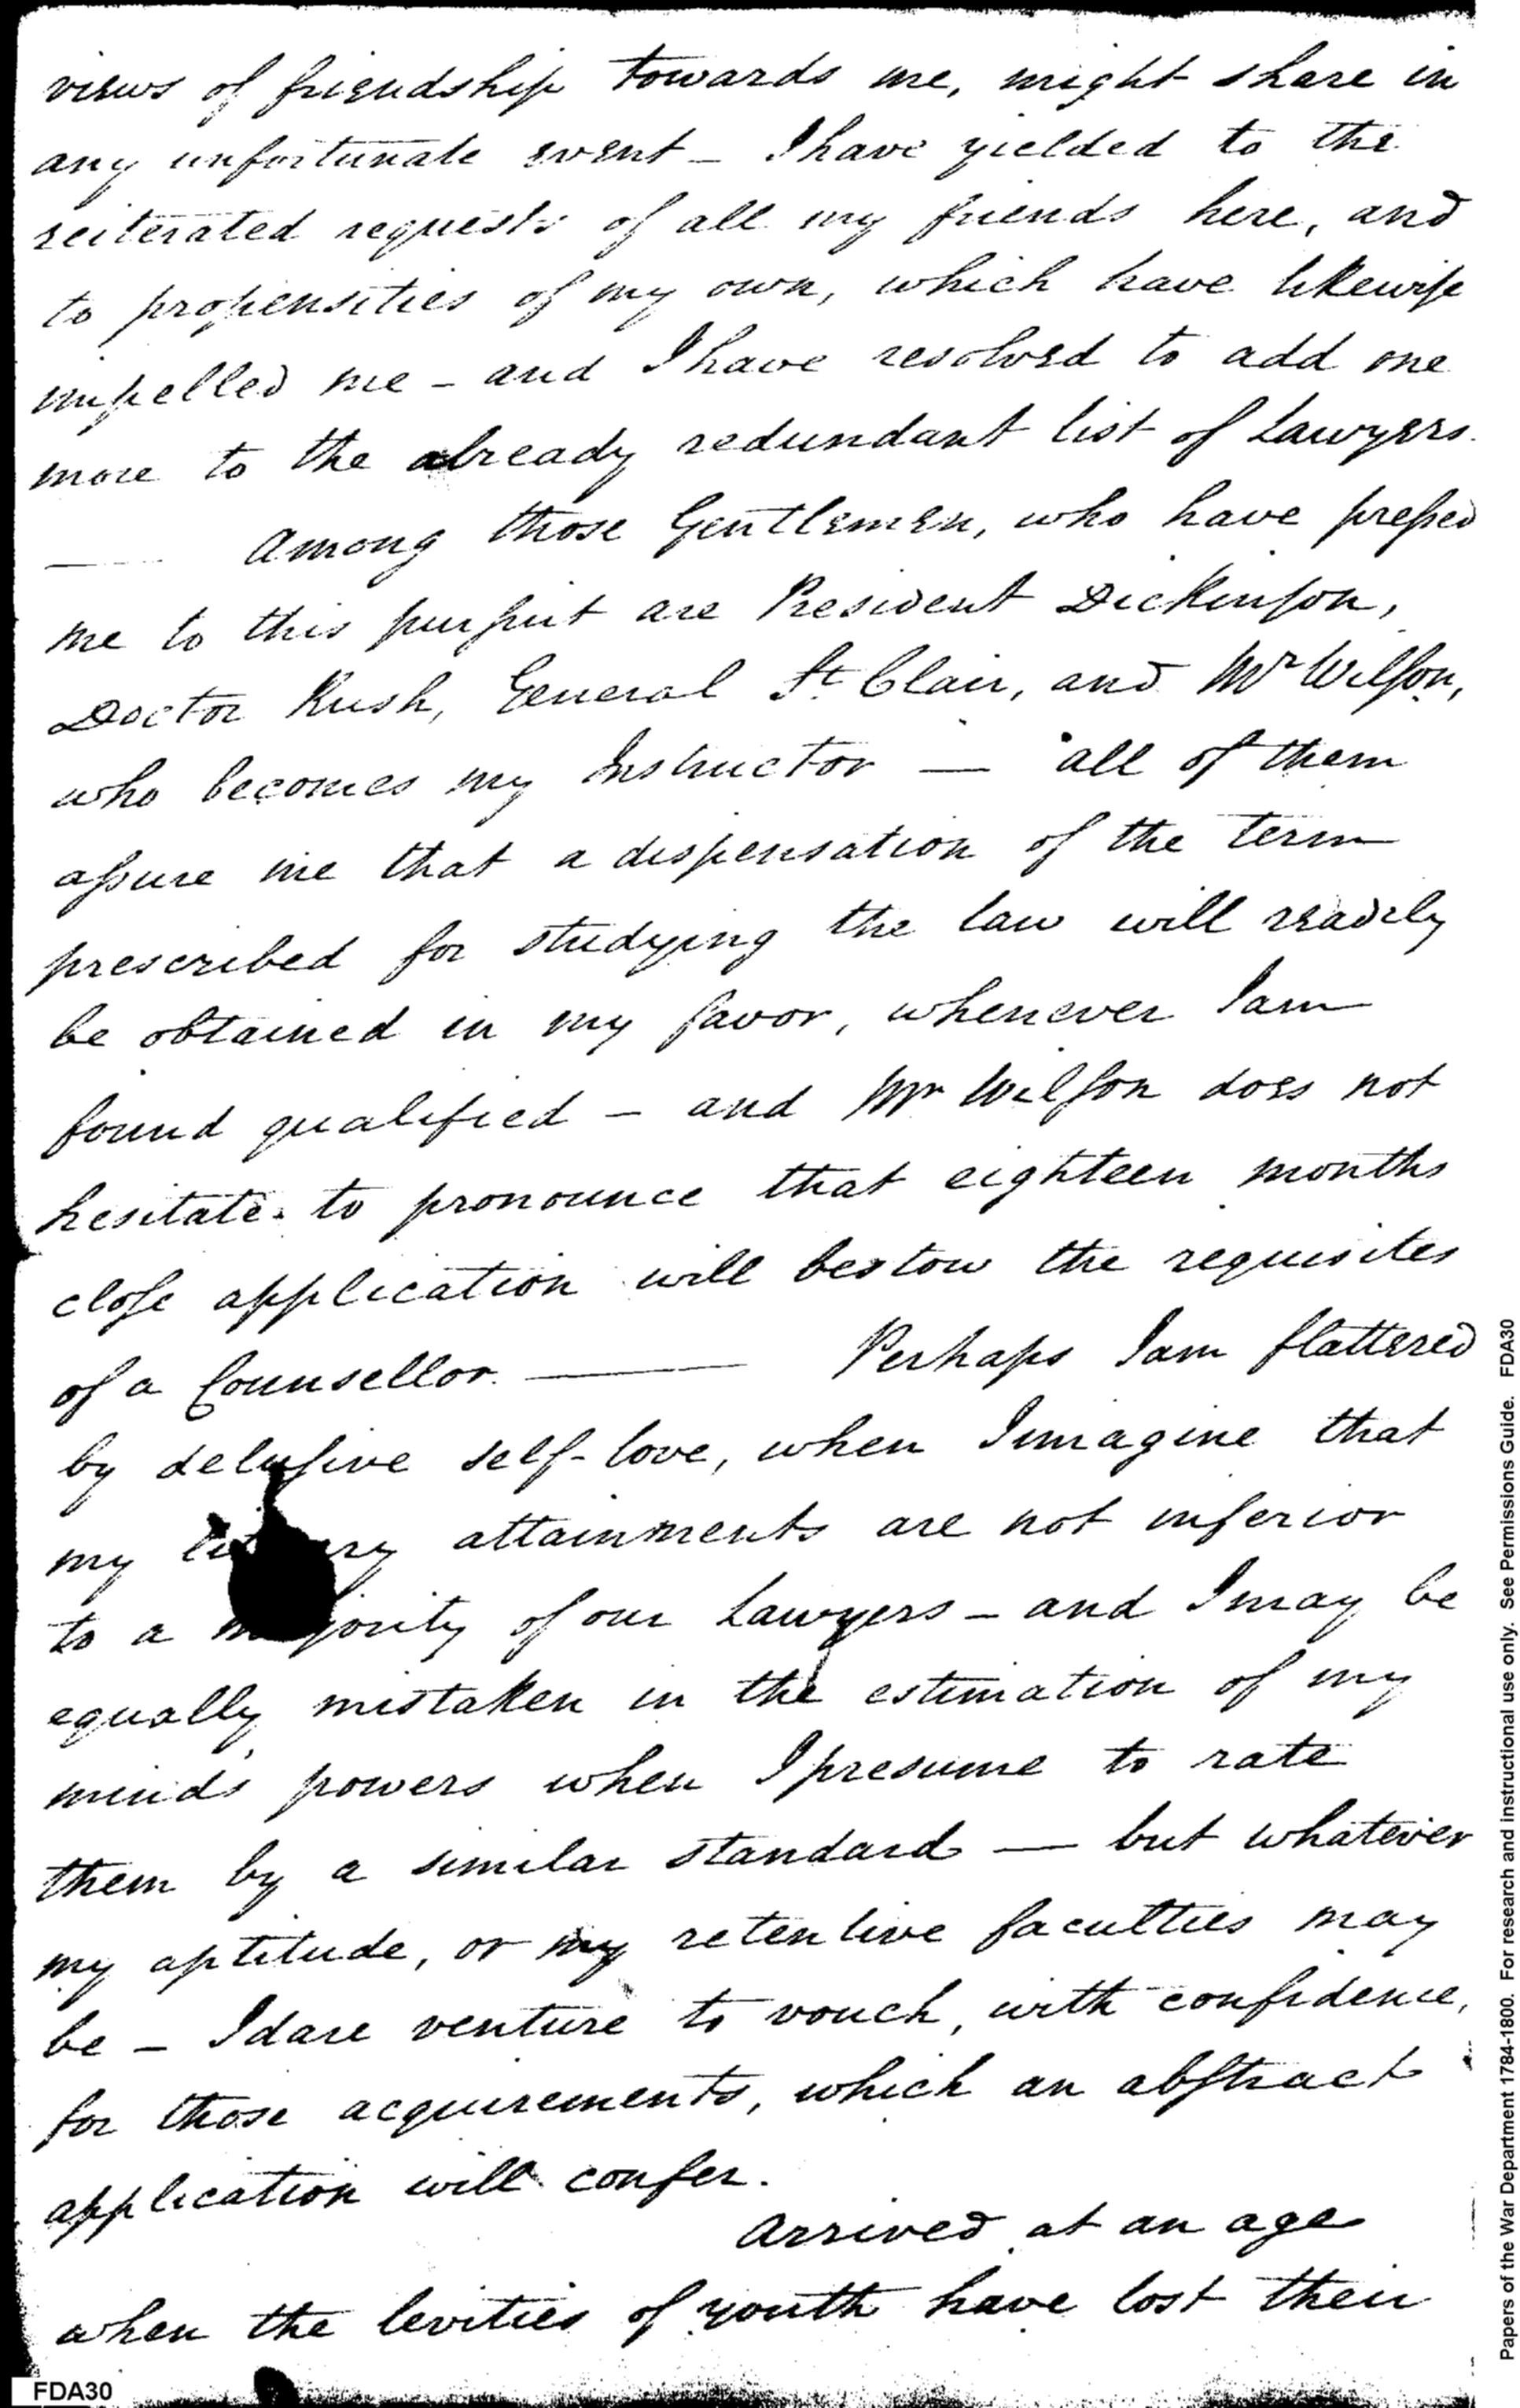 views of friendship towards me, might share in
any unfortunate event - I have yielded to the
reiterated requests of all my friends here, and
to propensities of my own, which have likewise
impelled me - and I have resolved to add one
more to the already redundant list of Lawyers.
Among those Gentlemen, who have pressed
me to this pursuit are President Dickinson,
Doctor Rush, General St. Clair, and Mr Wilson,
who becomes my Instructor — all of them
assure me that a dispensation of the term
prescribed for studying the law will readily
be obtained in my favor, whenever I am
found qualified - and Mr Wilson does not
hesitate to pronounce that eighteen months
close application will bestow the requisites
of a Counsellor. — Perhaps I am flattered
by delusive self-love, when I imagine that
my attainments are not inferior
to a majority of our Lawyers - and I may be
equally mistaken in the estimation of my
minds powers when I presume to rate
them by a similar standard — but whatever
my aptitude, or my retentive faculties may
be - I dare venture to vouch, with confidence,
for those acquirements, which an abstract
application will confer.
Arrived at an age
when the levities of youth have lost their
FDA30
Papers of the War Department 1784-1800. For research and instructional use only. See Permissions Guide. FDA30